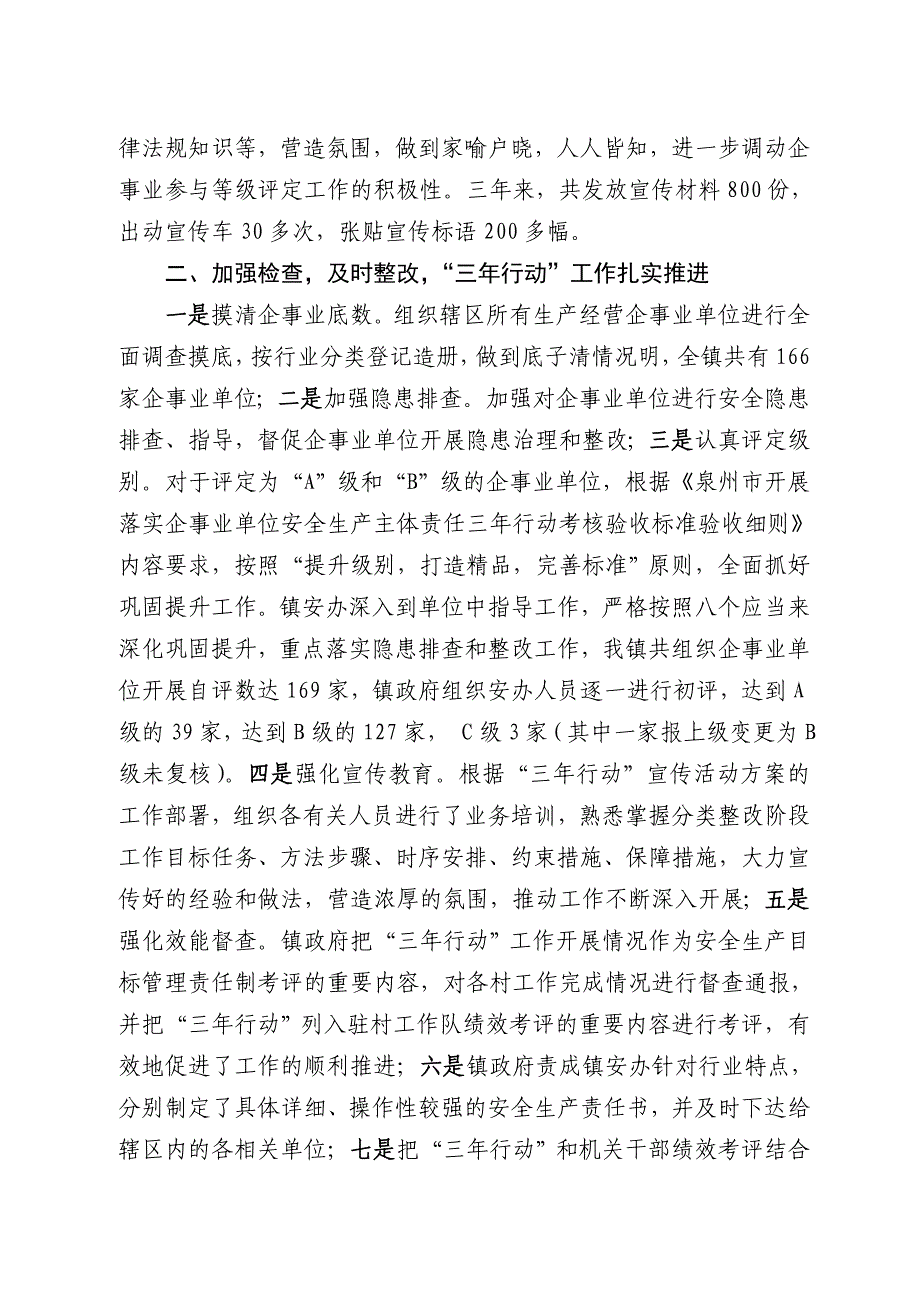 律法规知识等，营造氛围，做到家喻户晓，人人皆知，进一步调动企
事业参与等级评定工作的积极性。三年来，共发放宣传材料 800 份，
出动宣传车 30 多次，张贴宣传标语 200 多幅。
二、加强检查，及时整改，“三年行动”工作扎实推进
一是摸清企事业底数。组织辖区所有生产经营企事业单位进行全
面调查摸底，按行业分类登记造册，做到底子清情况明，全镇共有 166
家企事业单位；二是加强隐患排查。加强对企事业单位进行安全隐患
排查、指导，督促企事业单位开展隐患治理和整改；三是认真评定级
别。对于评定为“A”级和“B”级的企事业单位，根据《泉州市开展
落实企事业单位安全生产主体责任三年行动考核验收标准验收细则》
内容要求，按照“提升级别，打造精品，完善标准”原则，全面抓好
巩固提升工作。镇安办深入到单位中指导工作，严格按照八个应当来
深化巩固提升，重点落实隐患排查和整改工作，我镇共组织企事业单
位开展自评数达 169 家，镇政府组织安办人员逐一进行初评，达到 A
级的 39 家，达到 B 级的 127 家， C 级 3 家（其中一家报上级变更为 B
级未复核）。四是强化宣传教育。根据“三年行动”宣传活动方案的
工作部署，组织各有关人员进行了业务培训，熟悉掌握分类整改阶段
工作目标任务、方法步骤、时序安排、约束措施、保障措施，大力宣
传好的经验和做法，营造浓厚的氛围，推动工作不断深入开展；五是
强化效能督查。镇政府把“三年行动”工作开展情况作为安全生产目
标管理责任制考评的重要内容，对各村工作完成情况进行督查通报，
并把“三年行动”列入驻村工作队绩效考评的重要内容进行考评，有
效地促进了工作的顺利推进；六是镇政府责成镇安办针对行业特点，
分别制定了具体详细、操作性较强的安全生产责任书，并及时下达给
辖区内的各相关单位；七是把“三年行动”和机关干部绩效考评结合